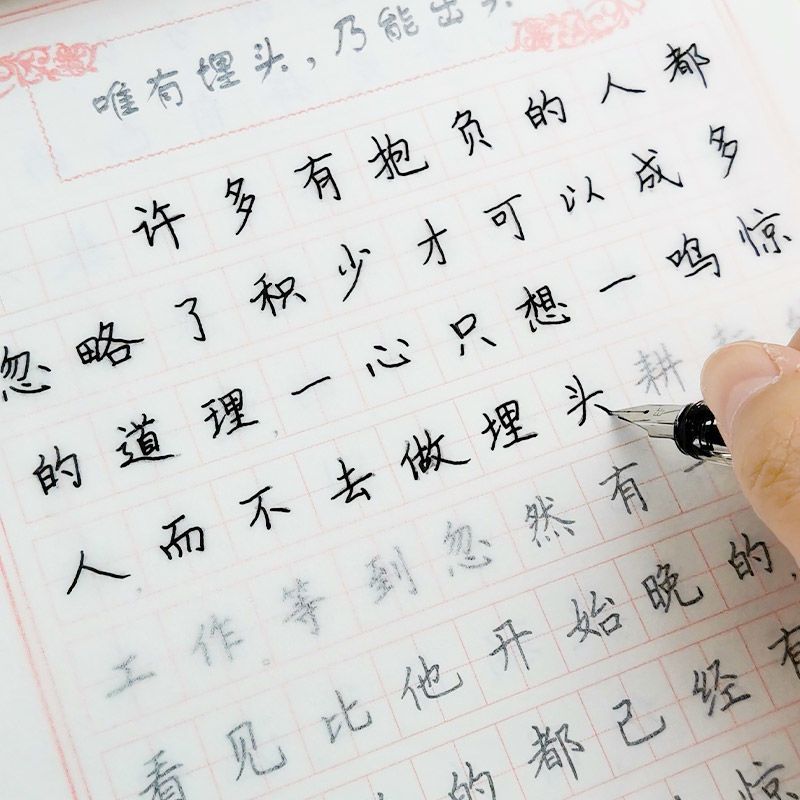 唯有埋头,乃能出头
许多有抱负的人都
忽略了积少才可以成多
的道理,一心只想一鸣惊
人,而不去做埋头耕耘
工作。等到忽然有一
看见比他开始晚的,
的都已经有
惊